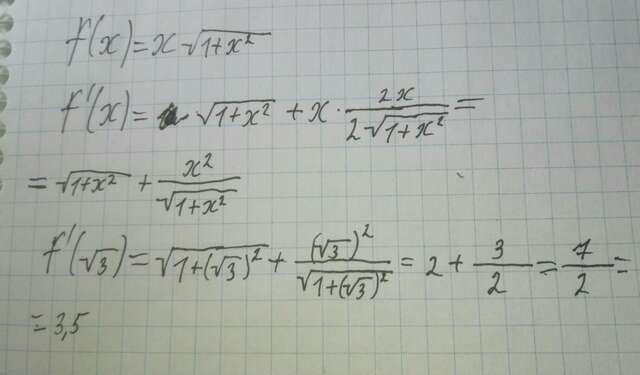 f(x)=x√(1+x²)
f'(x)= √(1+x²) + x · 2x/(2√(1+x²)) =
= √(1+x²) + x²/√(1+x²)
f'(√3)=√(1+(√3)²) + (√3)²/√(1+(√3)²) = 2 + 3/2 = 7/2 =
= 3,5